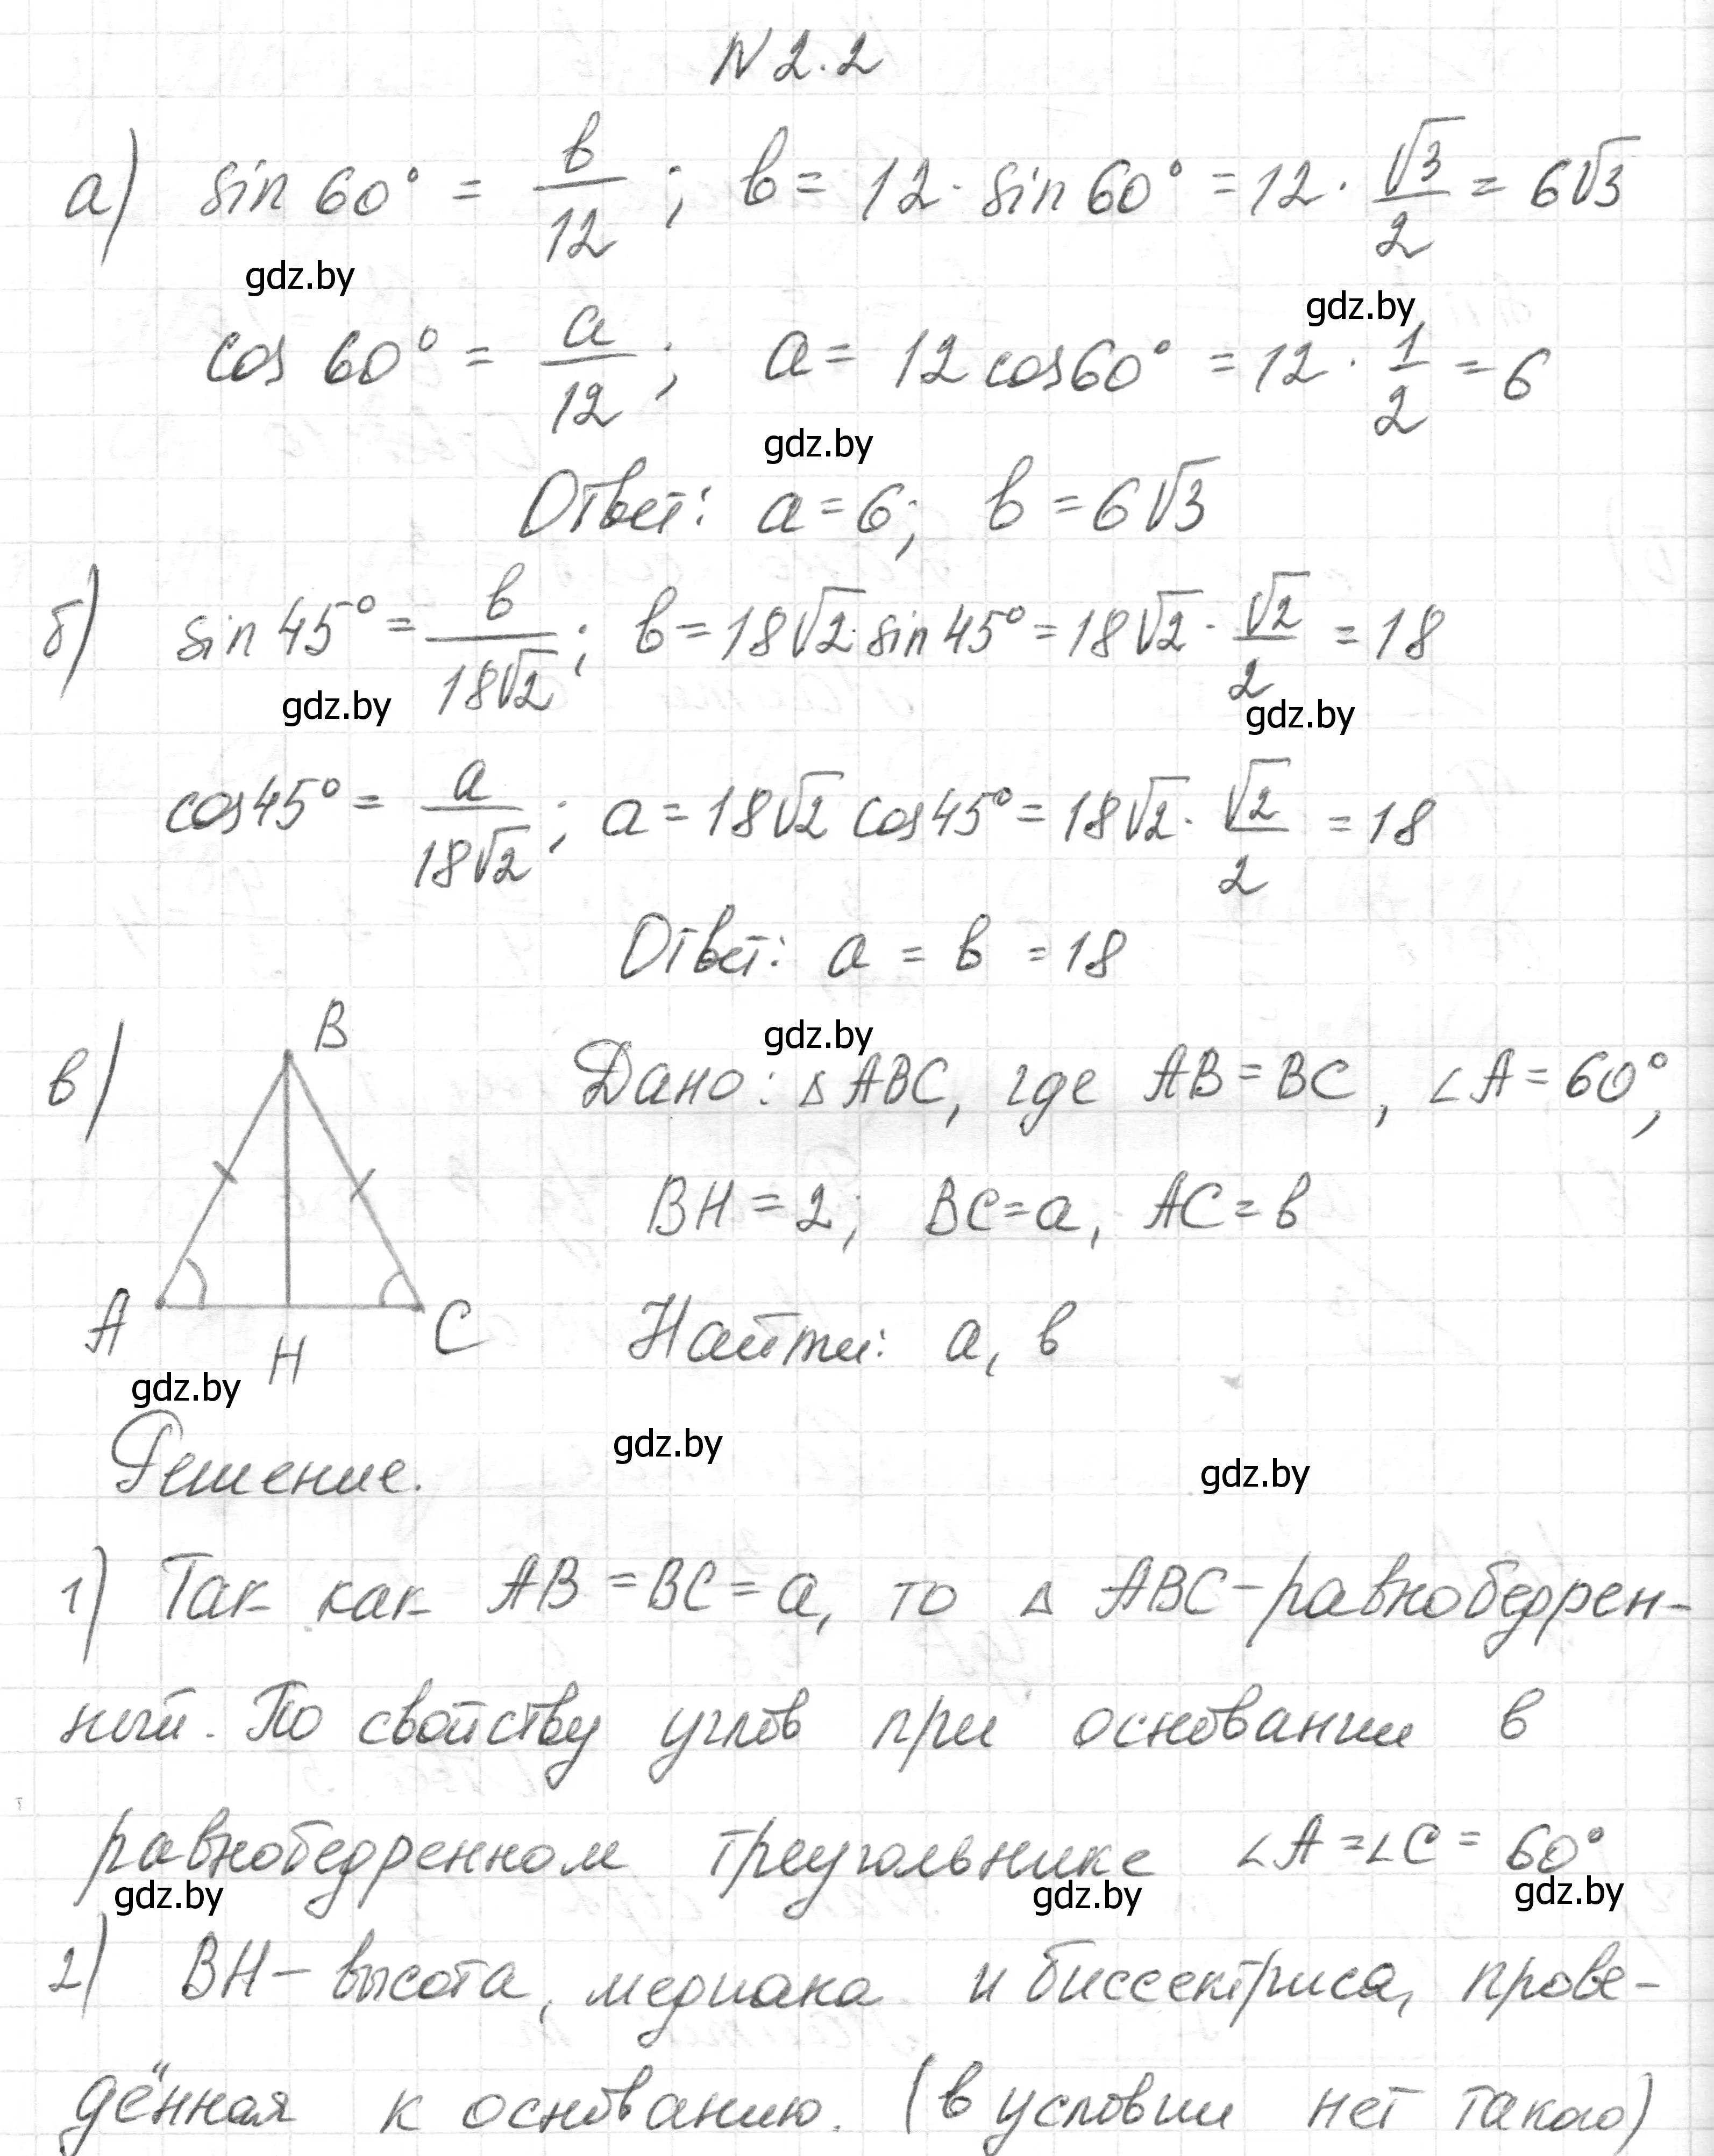 N 2.2
а) sin 60° = b/12 ; b = 12 · sin 60° = 12 · √3/2 = 6√3
gdz.by
gdz.by
cos 60° = a/12 ; a = 12 cos 60° = 12 · 1/2 = 6
gdz.by
Ответ: a = 6; b = 6√3
б) sin 45° = b/18√2 ; b = 18√2 · sin 45° = 18√2 · √2/2 = 18
gdz.by
gdz.by
cos 45° = a/18√2 ; a = 18√2 cos 45° = 18√2 · √2/2 = 18
Ответ: a = b = 18
gdz.by
в) B
Дано: △ ABC, где AB = BC, ∠A = 60°,
BH = 2; BC = a, AC = b
A H C
Найти: a, b
gdz.by
Решение.
gdz.by
gdz.by
1) Так как AB = BC = a, то △ ABC - равнобедрен-
ный. По свойству углов при основании в
равнобедренном треугольнике ∠A = ∠C = 60°
gdz.by
gdz.by
gdz.by
2) BH – высота, медиана и биссектриса, прове-
дённая к основанию. (в условии нет такого)